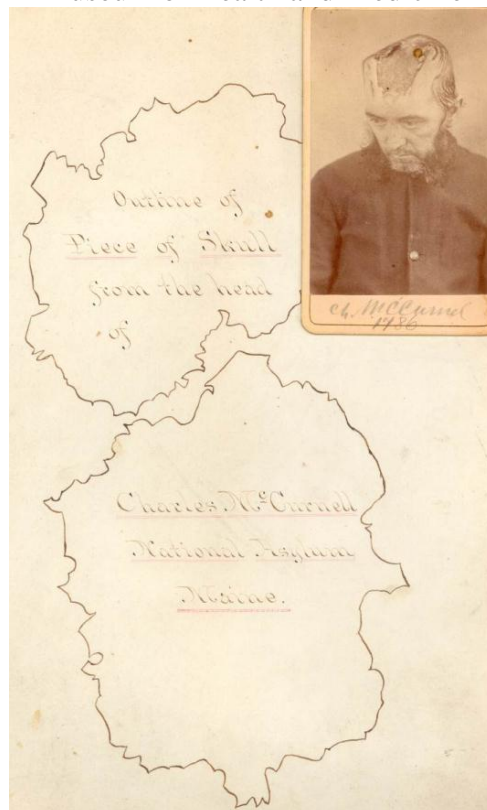 Outline of
Piece of Skull
from the head
of
Charles McCurnell
National Asylum
Maine.